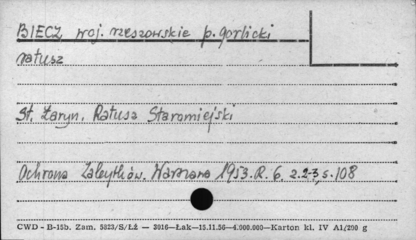 BIECZ woj. rzeszowskie p. gorlicki
ratusz
St. Żaryn. Ratusz Staromiejski
Ochrona Zabytków. Warszawa 1953. R. 6. z. 2-3, s. 108
CWD - B-15b. Zam. 5823/S/Łż — 3016—Łak—15.11.56—4.000.000—Karton kl. IV A1/250 g